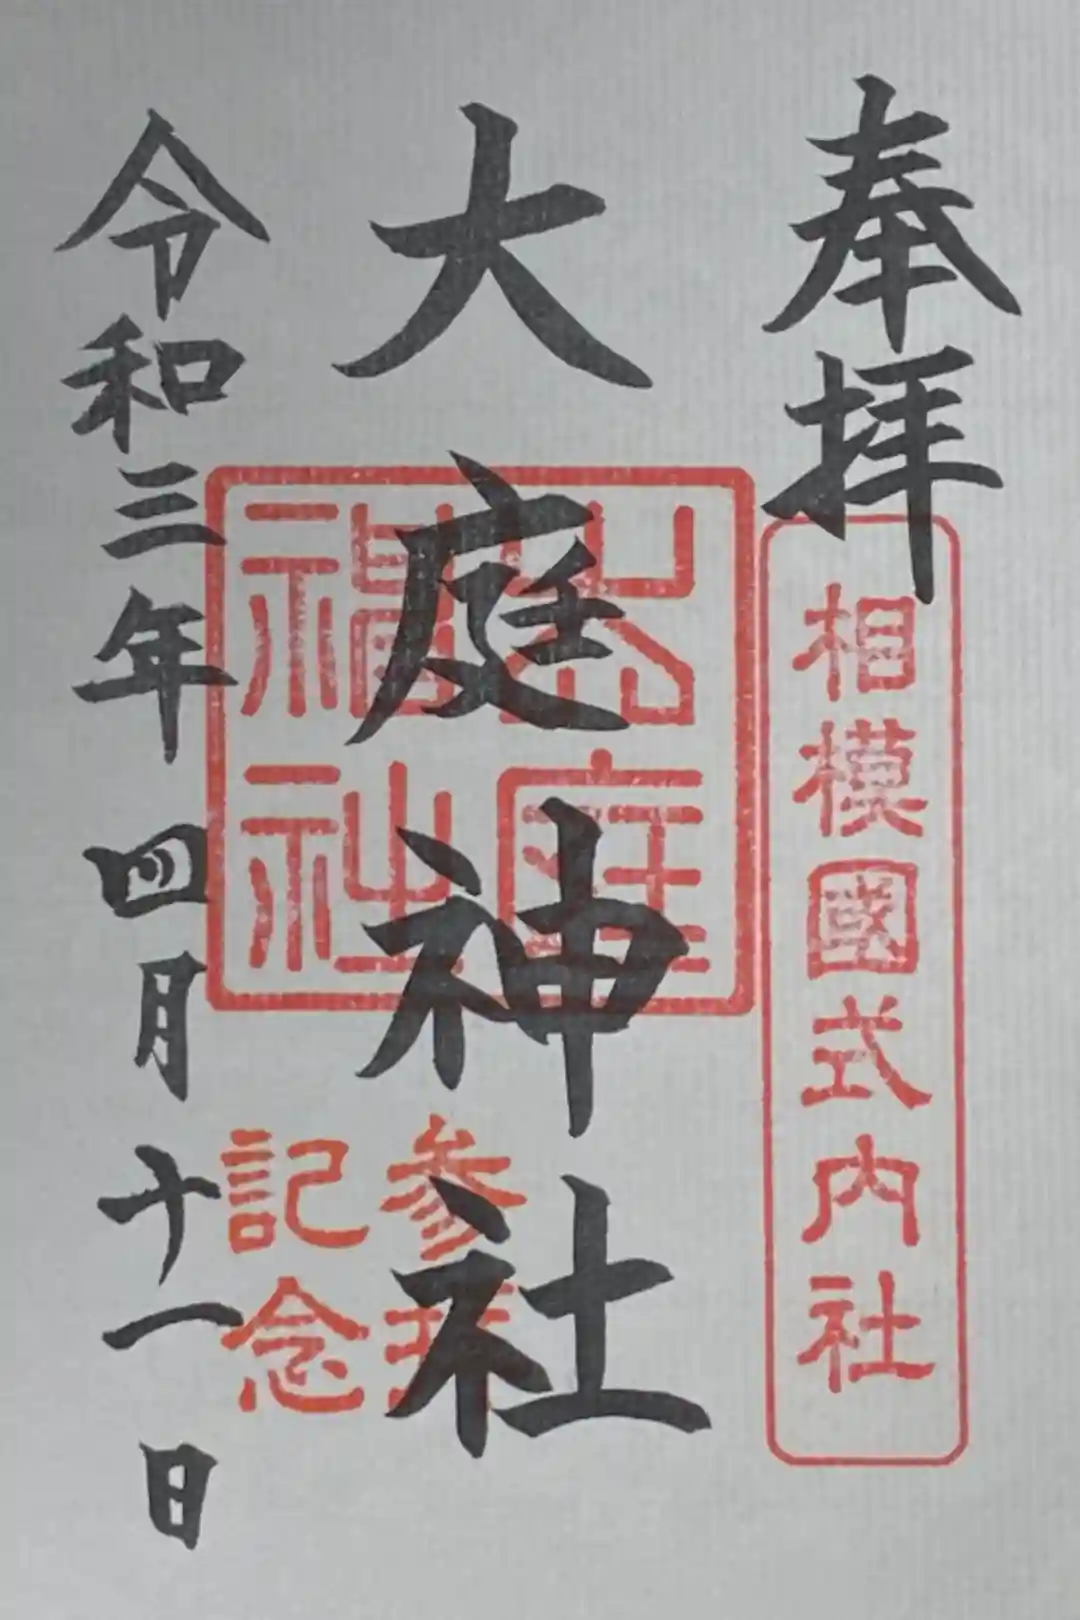 奉拝
相模國式内社
大庭神社
大庭神社
参拝
記念
令和三年四月十一日